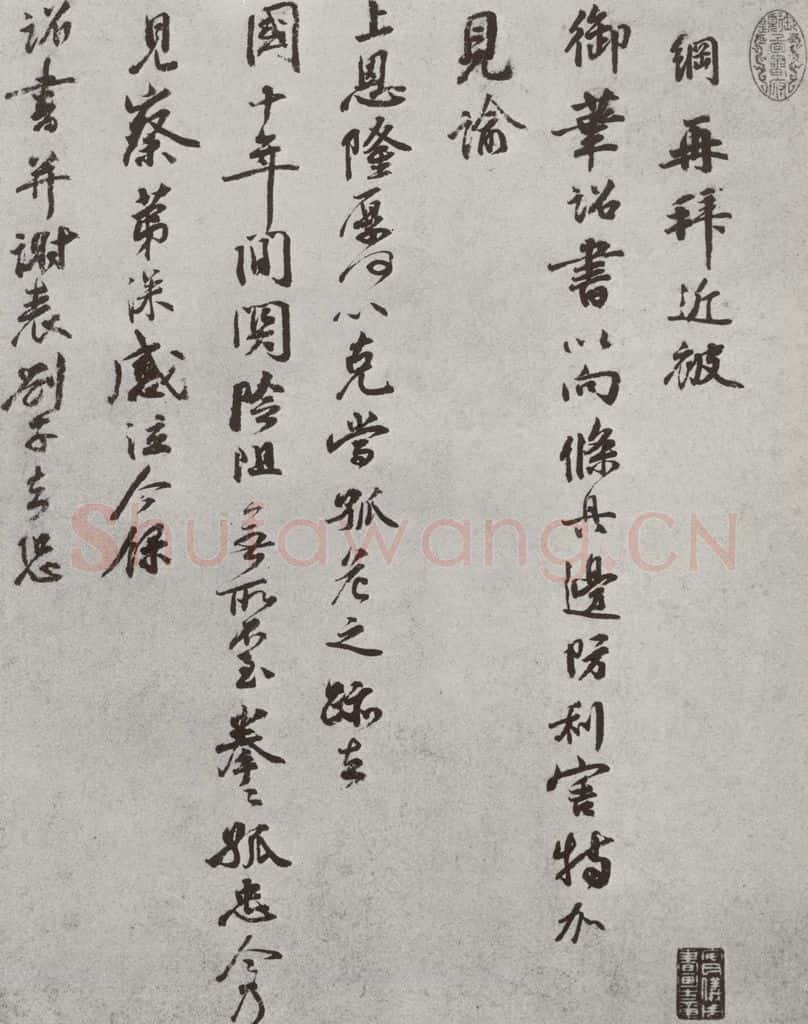 綱再拜近被
御筆詔書以向條具邊防利害特加
見諭
上恩隆厚何以克當孤危之蹤去
國十年間關險阻無所不至拳〻孤忠今乃
見察第深感泣今錄
詔書并謝表劄子去恐
Shufawang.CN